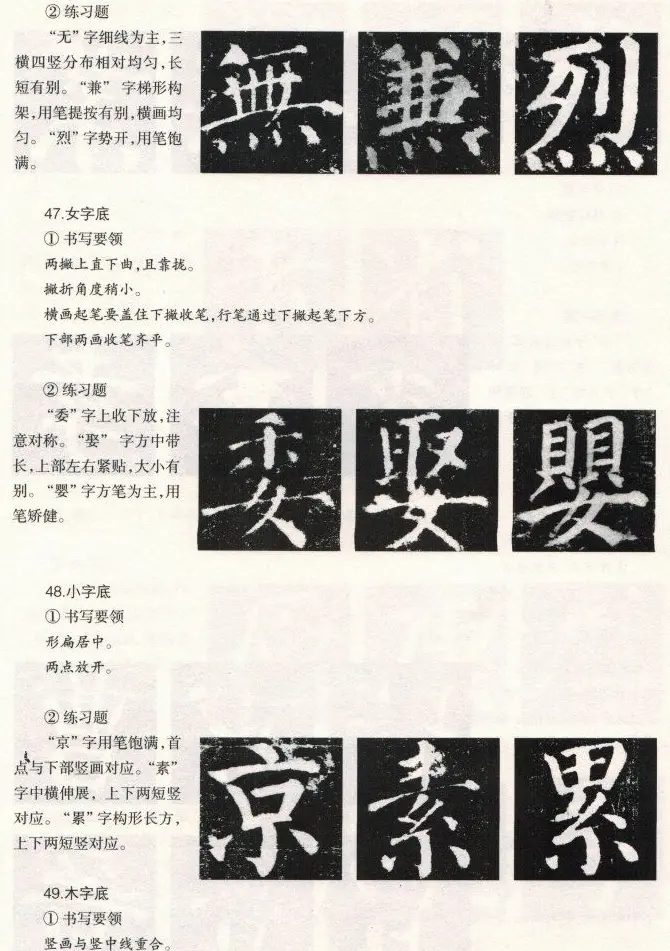 ② 练习题
“无”字细线为主,三
横四竖分布相对均匀,长
短有别。“兼” 字梯形构
架,用笔提按有别,横画均
匀。“烈”字势开,用笔饱
满。
無 兼 烈
47.女字底
① 书写要领
两撇上直下曲,且靠拢。
撇折角度稍小。
横画起笔要盖住下撇收笔,行笔通过下撇起笔下方。
下部两画收笔齐平。
② 练习题
“委”字上收下放,注
意对称。“娶” 字方中带
长,上部左右紧贴,大小有
别。“婴”字方笔为主,用
笔矫健。
委 娶 嬰
48.小字底
① 书写要领
形扁居中。
两点放开。
② 练习题
“京”字用笔饱满,首
点与下部竖画对应。“素”
字中横伸展, 上下两短竖
对应。“累”字构形长方,
上下两短竖对应。
京 素 累
49.木字底
① 书写要领
竖画与竖中线重合。